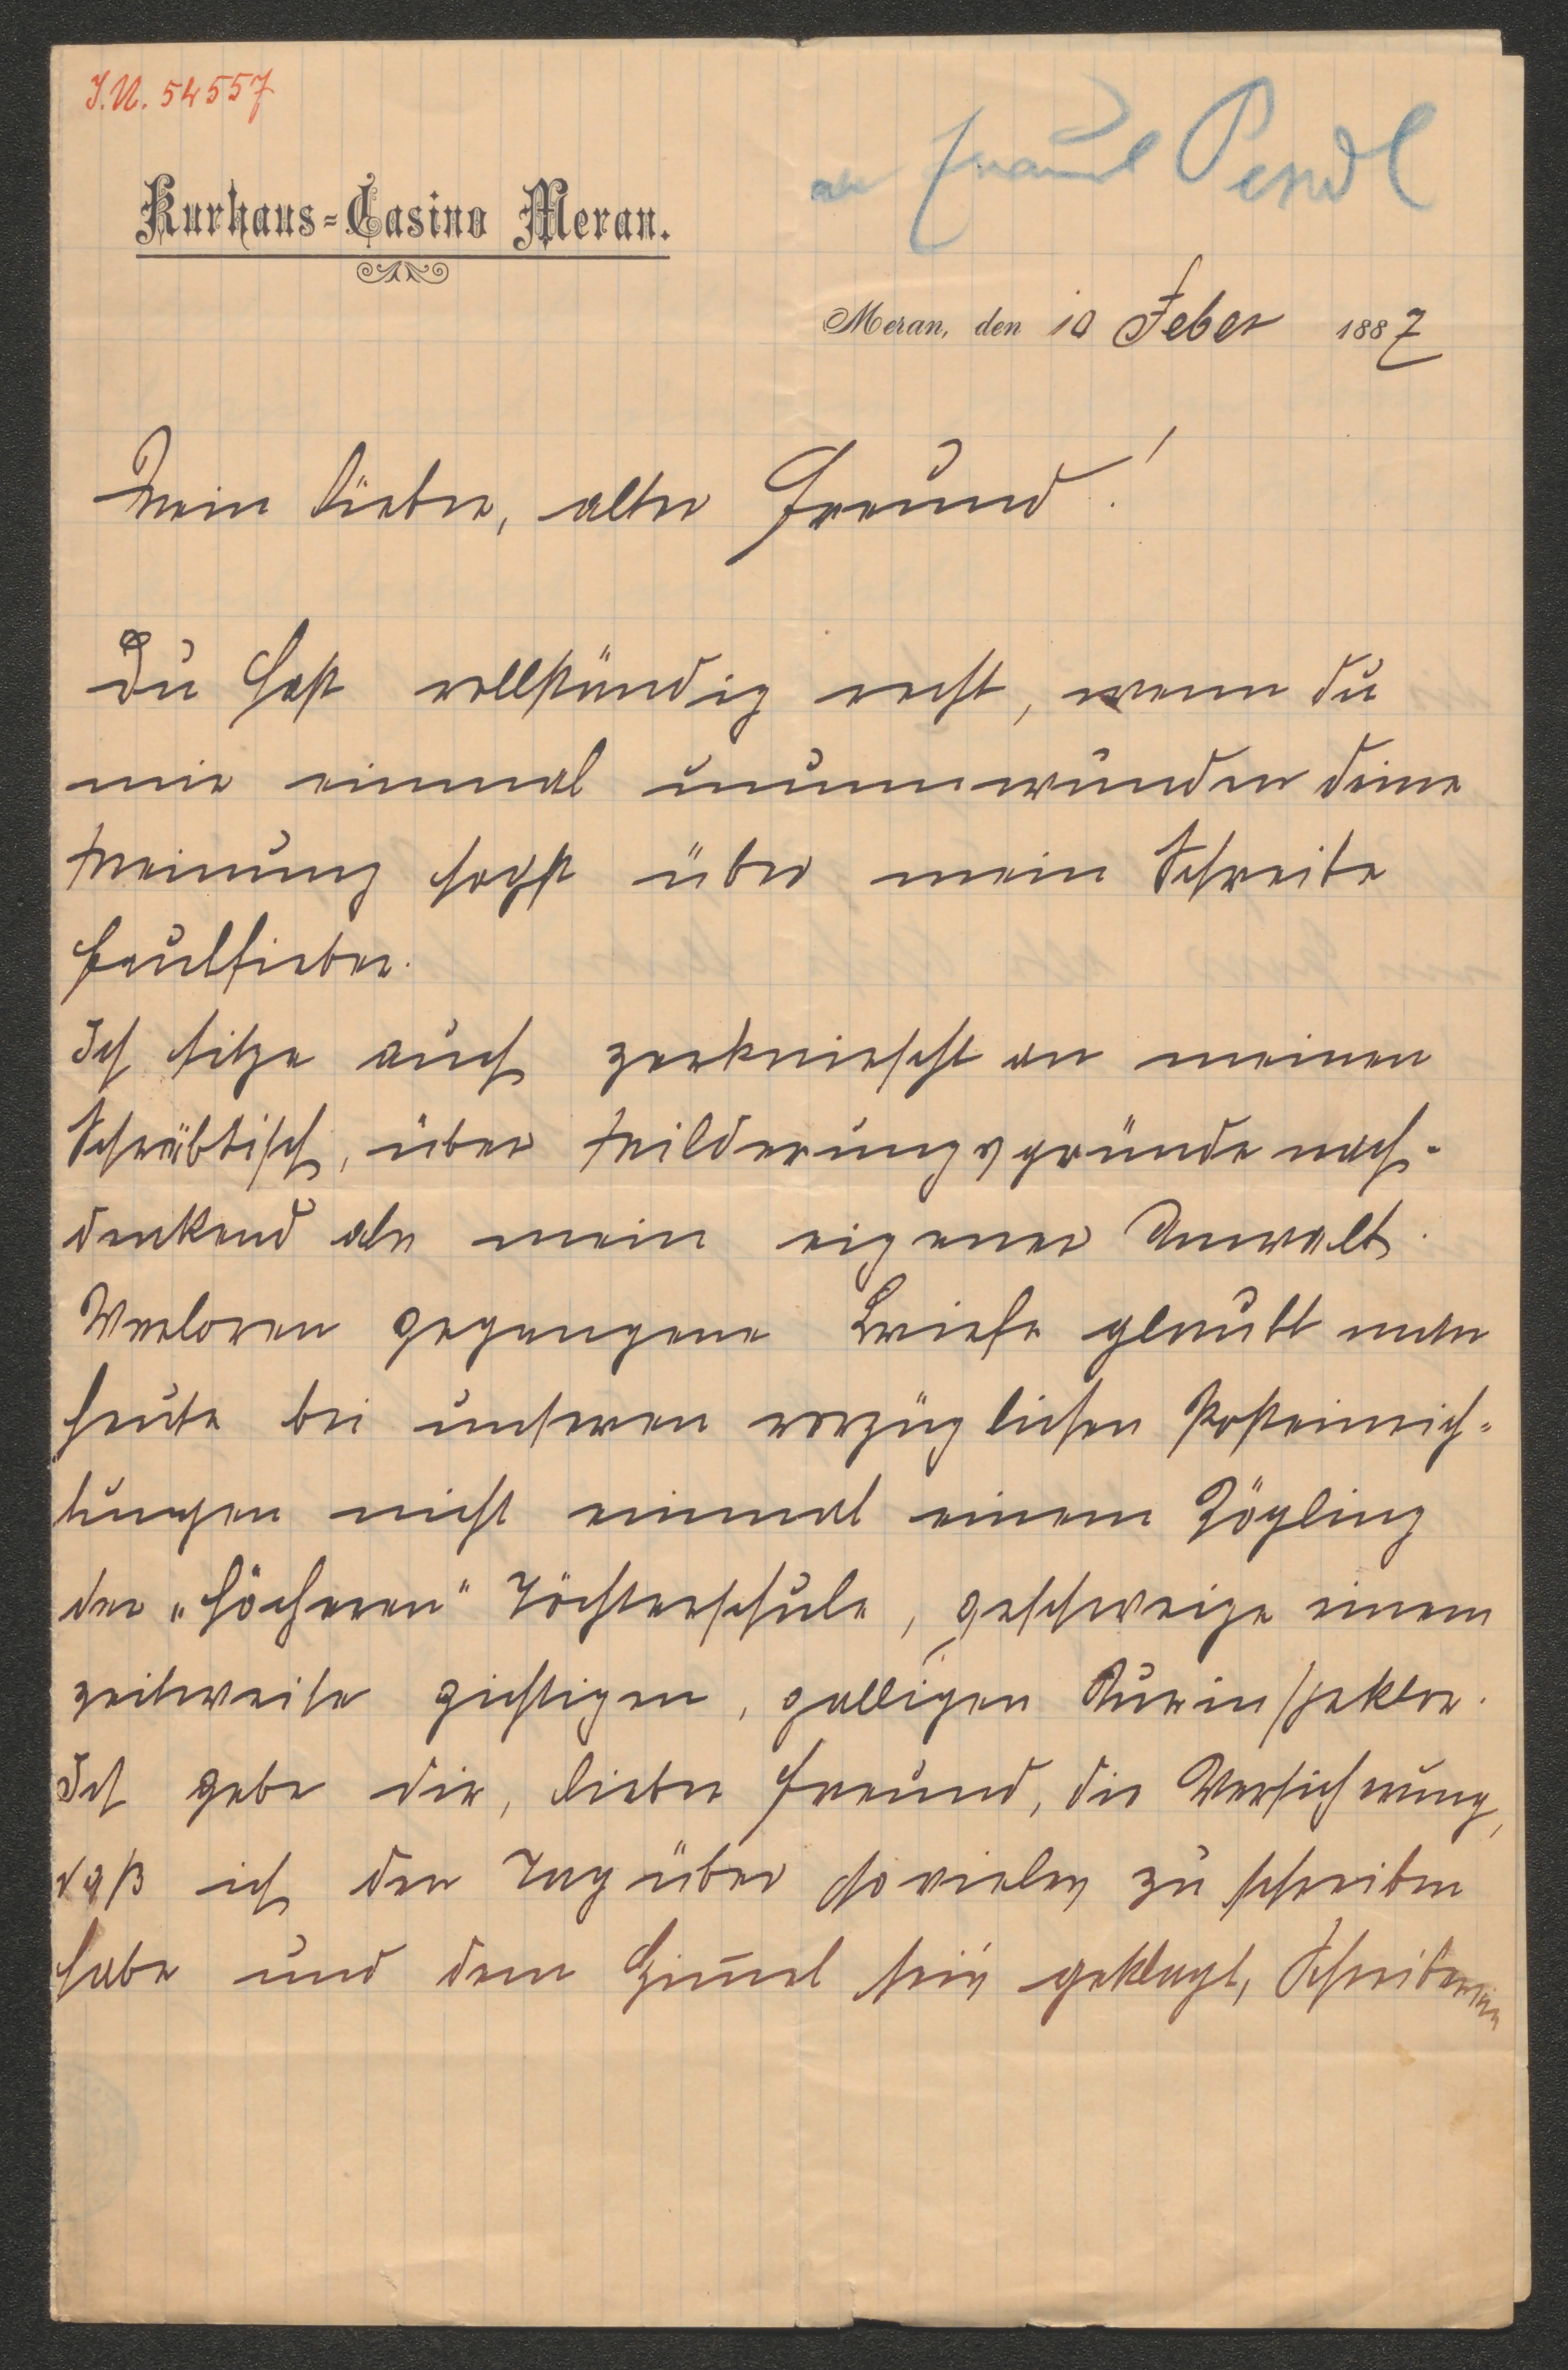 I.N. 54557
an Franz Pendl
Kurhaus-Casino Meran.
Meran, den 10 Feber 1887
Mein lieber, alter Freund!
Du hast vollständig recht, wenn du
mir einmal unumwunden deine
Meinung sagst über mein Schreibe
faulfieber.
Ich sitze auch zerknirscht an meinen
Schreibtisch, über Milderungsgründe nach-
denkend als mein eigener Anwalt.
Verloren gegangene Briefe glaubt man
heute bei unseren vorzüglichen Posteinrich-
tungen nicht einmal einem Zögling
der „höcheren" Töchterschule, geschweige einem
zeitweise gichtigen, galligen Kurinspektor.
Ich gebe dir, lieber Freund, die Versicherung,
daß ich den Tag über so vieles zu schreiben
habe und dem Himmel sei's geklagt, Schreibereien